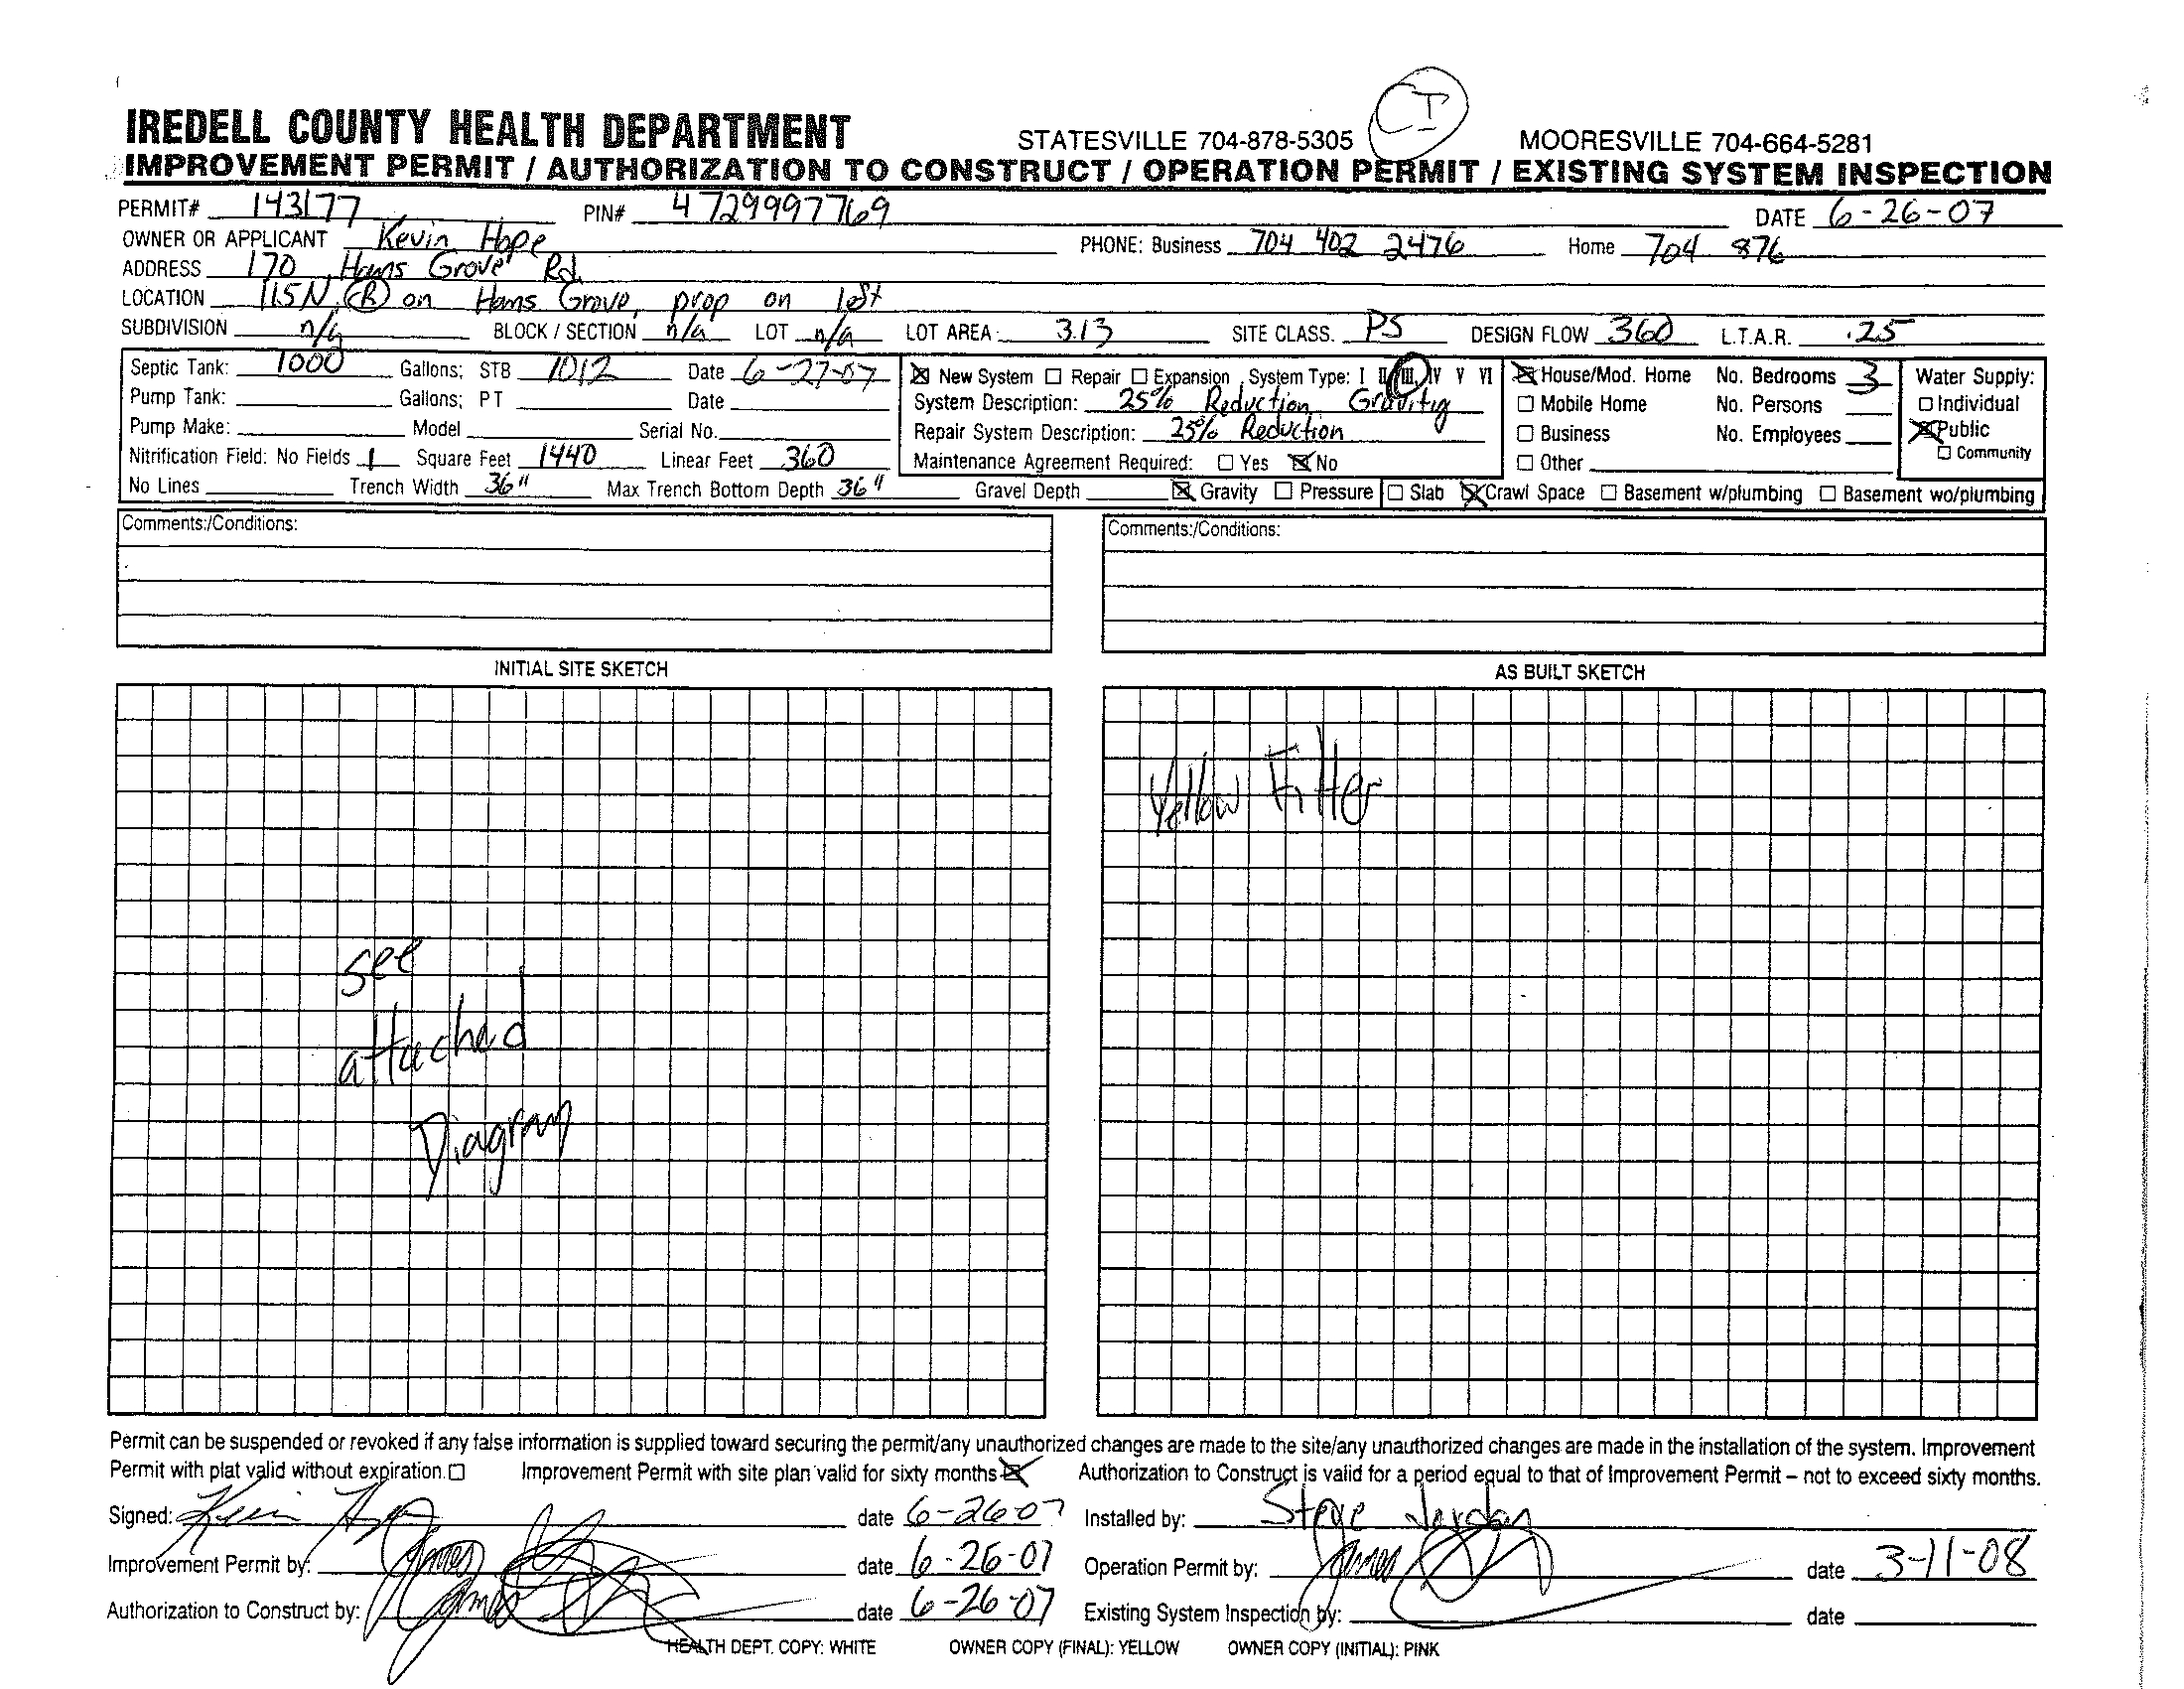 CI
IREDELL COUNTY HEALTH DEPARTMENT STATESVILLE 704-878-5305 MOORESVILLE 704-664-5281
IMPROVEMENT PERMIT / AUTHORIZATION TO CONSTRUCT / OPERATION PERMIT / EXISTING SYSTEM INSPECTION
PERMIT# 143177 PIN# 4729997769 DATE 6-26-07
OWNER OR APPLICANT Kevin Hope PHONE: Business 704 402 2476 Home 704 876
ADDRESS 170 Hams Grove Rd.
LOCATION 115N (R) on Hams Grove, prop on left
SUBDIVISION n/a BLOCK / SECTION n/a LOT n/a LOT AREA 3.13 SITE CLASS. PS DESIGN FLOW 360 L.T.A.R. .25
Septic Tank: 1000 Gallons; STB 1012 Date 6-27-07 ☒ New System ☐ Repair ☐ Expansion System Type: I II III IV V VI ☒ House/Mod. Home No. Bedrooms 3 Water Supply:
Pump Tank: Gallons; PT Date System Description: 25% Reduction Gravity ☐ Mobile Home No. Persons ☐ Individual
Pump Make: Model Serial No. Repair System Description: 25% Reduction ☐ Business No. Employees ☒ Public
Nitrification Field: No Fields 1 Square Feet 1440 Linear Feet 360 Maintenance Agreement Required: ☐ Yes ☒ No ☐ Other ☐ Community
No Lines Trench Width 36" Max Trench Bottom Depth 36" Gravel Depth ☒ Gravity ☐ Pressure ☐ Slab ☒ Crawl Space ☐ Basement w/plumbing ☐ Basement wo/plumbing
Comments:/Conditions: Comments:/Conditions:
INITIAL SITE SKETCH AS BUILT SKETCH
Yellow Filter
see
attached
Diagram
Permit can be suspended or revoked if any false information is supplied toward securing the permit/any unauthorized changes are made to the site/any unauthorized changes are made in the installation of the system. Improvement
Permit with plat valid without expiration. ☐ Improvement Permit with site plan valid for sixty months ☒ Authorization to Construct is valid for a period equal to that of Improvement Permit – not to exceed sixty months.
Signed: Kevin Hope date 6-26-07 Installed by: Steve Jordan
Improvement Permit by: James date 6-26-07 Operation Permit by: James date 3-11-08
Authorization to Construct by: James date 6-26-07 Existing System Inspection by: date
HEALTH DEPT. COPY: WHITE OWNER COPY (FINAL): YELLOW OWNER COPY (INITIAL): PINK